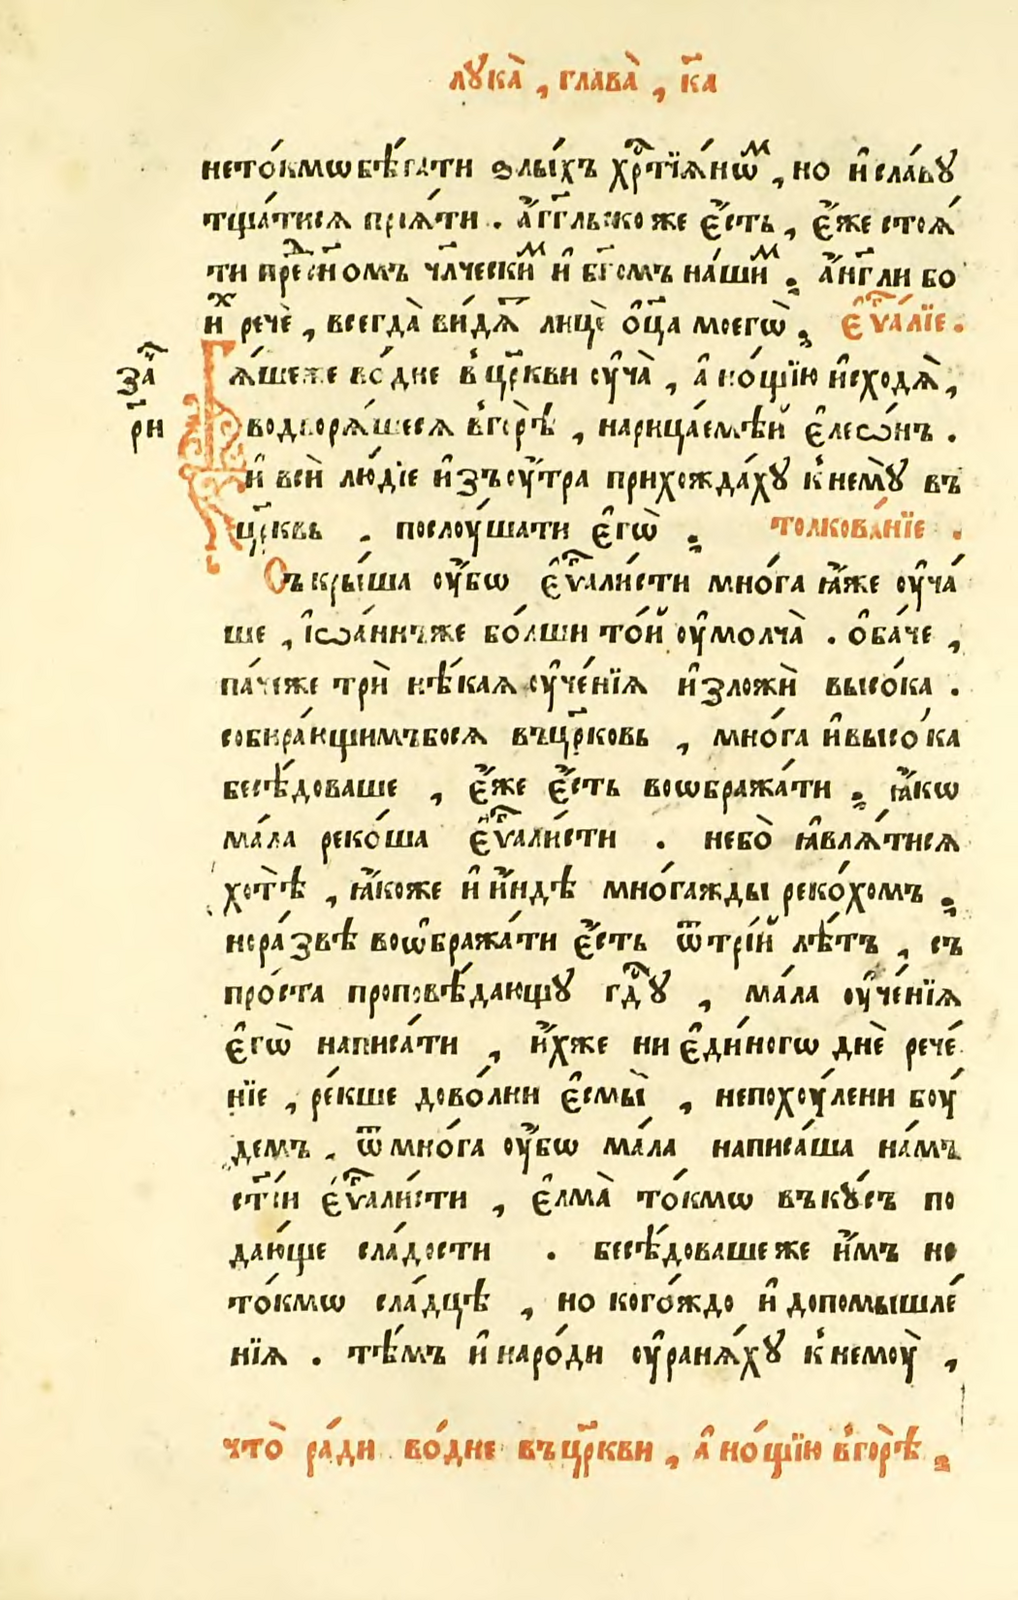 лꙋка̀ , глава̀ , к҃а
нето́кмѡбѣ́гати ѕлы́хъ хрⷭ҇тїѧ́нѡⷨ , но и҆сла́вꙋ
тщатисѧ прїѧ́ти . а҆́гг҃льскоже є҆́сть , є҆́же стоѧ́
ти преⷣ сн҃омъ чл҃чески́ⷨ и҆ бг҃омъ на́шиⷨ ; а҆́нг҃ли бо
и҆́ⷯ речѐ , всегда̀ ви́дѧт лицѐ о҆ц҃а моегѡ̀ ; є҆ѵⷢ҇а́лїе .
заⷱ҇
р҃и
Бѧ́шеже во́дне в҆ цр҃кви оу҆ча̀ , а҆ но́щїю и҆сходѧ̀ ,
водворѧ́шесѧ в҆горѣ̀ , нарица́емѣй є҆лесѡ́нъ .
и҆ всѝ лю́дїе и҆зъоу́тра прихожда́хꙋ к҆немꙋ̀ въ
цр҃квь . послоу́шати є҆гѡ̀ ; толкова́нїе .
Съкры́ша оу҆́бѡ є҆ѵⷢ҇али́сти мно́га ꙗ҆́же оу҆ча́
ше , і҆ѡа́ннъже бо́лши то́й оу҆молча̀ . ѻ҆ба́че ,
па́чеже трѝ нѣ́каѧ оу҆че́нїѧ и҆зложѝ высо́ка .
собира́ющимъбосѧ въцр҃ковь , мно́га и҆высо́ка
бесѣ́доваше , є҆́же є҆́сть воѡбража́ти ; ꙗ҆́кѡ
ма́ла реко́ша є҆ѵⷢ҇али́сти . небо̀ ꙗ҆влѧ́тисѧ
хотѣ̀ , ꙗ҆́коже и҆ и҆́ндѣ мно́гажды реко́хомъ ;
нора́звѣ воѡбража́ти є҆́сть ѿтрі́й лѣ́тъ , съ
про́ста проповѣ́дающꙋ гдⷭ҇ꙋ , ма́ла оу҆че́нїѧ
є҆гѡ̀ написа́ти , и҆́хже ни є҆ди́ногѡ днѐ рече́
нїе , ре́кше дово́лни є҆смы̀ , непохоу́лени боу́
демъ . ѿмно́га оу҆́бѡ ма́ла написа́ша на́мъ
ст҃і́и є҆ѵⷢ҇али́сти , є҆лма̀ то́кмѡ въкꙋ́съ по
даю́ще сла́дости . бесѣ́довашеже и҆́мъ не
то́кмѡ сла́дцѣ , но кого́ждо и҆ допомышле́
нїѧ . тѣ́мъ и҆ наро́ди оу҆ранѧ́хꙋ к҆ немоу̀ ,
что̀ ра́ди во́дне въцр҃кви , а҆ но́щїю в҆горѣ̀ ;